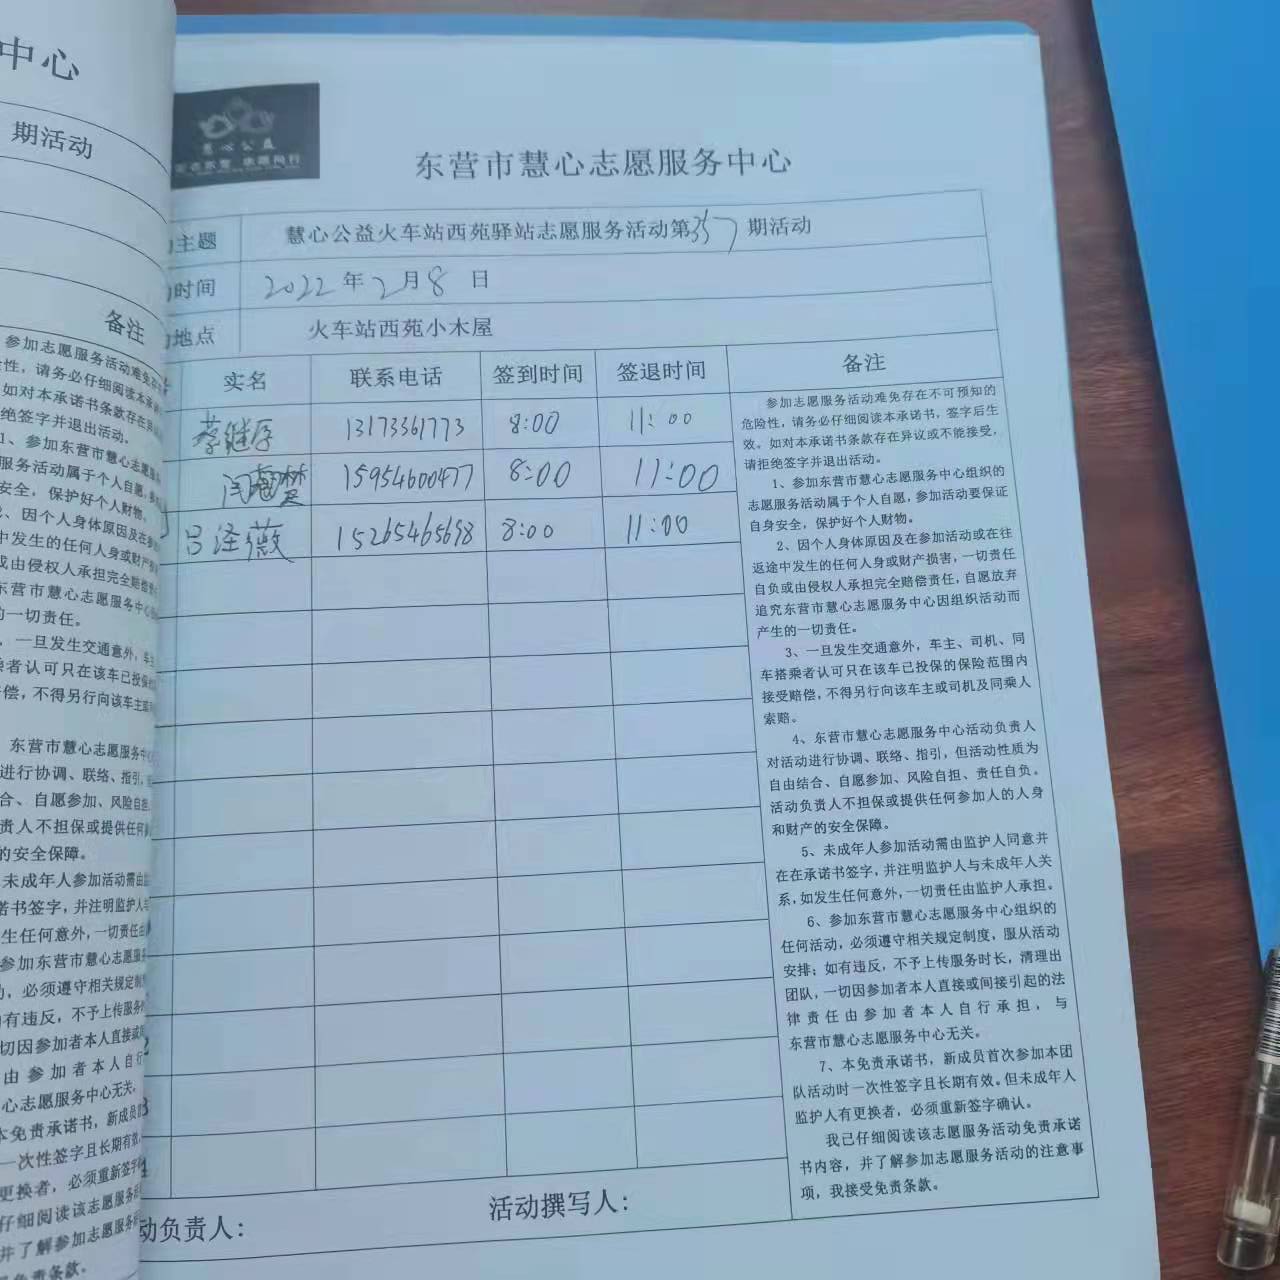 中心
期活动
备注
参加志愿服务活动难免存
性，请务必仔细阅读本承
如对本承诺书条款存在异
绝签字并退出活动。
、参加东营市慧心志愿
服务活动属于个人自愿，
安全，保护好个人财物。
、因个人身体原因及在参
中发生的任何人身或财产
或由侵权人承担完全赔偿
东营市慧心志愿服务中心
的一切责任。
，一旦发生交通意外，车主
乘者认可只在该车已投保
偿，不得另行向该车主或
东营市慧心志愿服务中
进行协调、联络、指引，
合、自愿参加、风险自担
责人不担保或提供任何
的安全保障。
未成年人参加活动需由
诺书签字，并注明监护人
生任何意外，一切责任由
参加东营市慧心志愿服务
，必须遵守相关规定制
有违反，不予上传服务
切因参加者本人直接或
由参加者本人自行
心志愿服务中心无关。
本免责承诺书，新成员首
一次性签字且长期有效
更换者，必须重新签字
仔细阅读该志愿服务活动
并了解参加志愿服务活动
免责条款。
慧心公益
东营市慧心志愿服务中心
主题 慧心公益火车站西苑驿站志愿服务活动第357期活动
时间 2022年2月8日
地点 火车站西苑小木屋
实名 联系电话 签到时间 签退时间 备注
蔡继厚 13173361773 8:00 11:00
闫 15954600477 8:00 11:00
吕泽薇 15265465698 8:00 11:00
参加志愿服务活动难免存在不可预知的
危险性，请务必仔细阅读本承诺书，签字后生
效。如对本承诺书条款存在异议或不能接受，
请拒绝签字并退出活动。
1、参加东营市慧心志愿服务中心组织的
志愿服务活动属于个人自愿，参加活动要保证
自身安全，保护好个人财物。
2、因个人身体原因及在参加活动或在往
返途中发生的任何人身或财产损害，一切责任
自负或由侵权人承担完全赔偿责任，自愿放弃
追究东营市慧心志愿服务中心因组织活动而
产生的一切责任。
3、一旦发生交通意外，车主、司机、同
车搭乘者认可只在该车已投保的保险范围内
接受赔偿，不得另行向该车主或司机及同乘人
索赔。
4、东营市慧心志愿服务中心活动负责人
对活动进行协调、联络、指引，但活动性质为
自由结合、自愿参加、风险自担、责任自负。
活动负责人不担保或提供任何参加人的人身
和财产的安全保障。
5、未成年人参加活动需由监护人同意并
在在承诺书签字，并注明监护人与未成年人关
系，如发生任何意外，一切责任由监护人承担。
6、参加东营市慧心志愿服务中心组织的
任何活动，必须遵守相关规定制度，服从活动
安排；如有违反，不予上传服务时长，清理出
团队，一切因参加者本人直接或间接引起的法
律责任由参加者本人自行承担，与
东营市慧心志愿服务中心无关。
7、本免责承诺书，新成员首次参加本团
队活动时一次性签字且长期有效。但未成年人
监护人有更换者，必须重新签字确认。
我已仔细阅读该志愿服务活动免责承诺
书内容，并了解参加志愿服务活动的注意事
项，我接受免责条款。
动负责人： 活动撰写人：